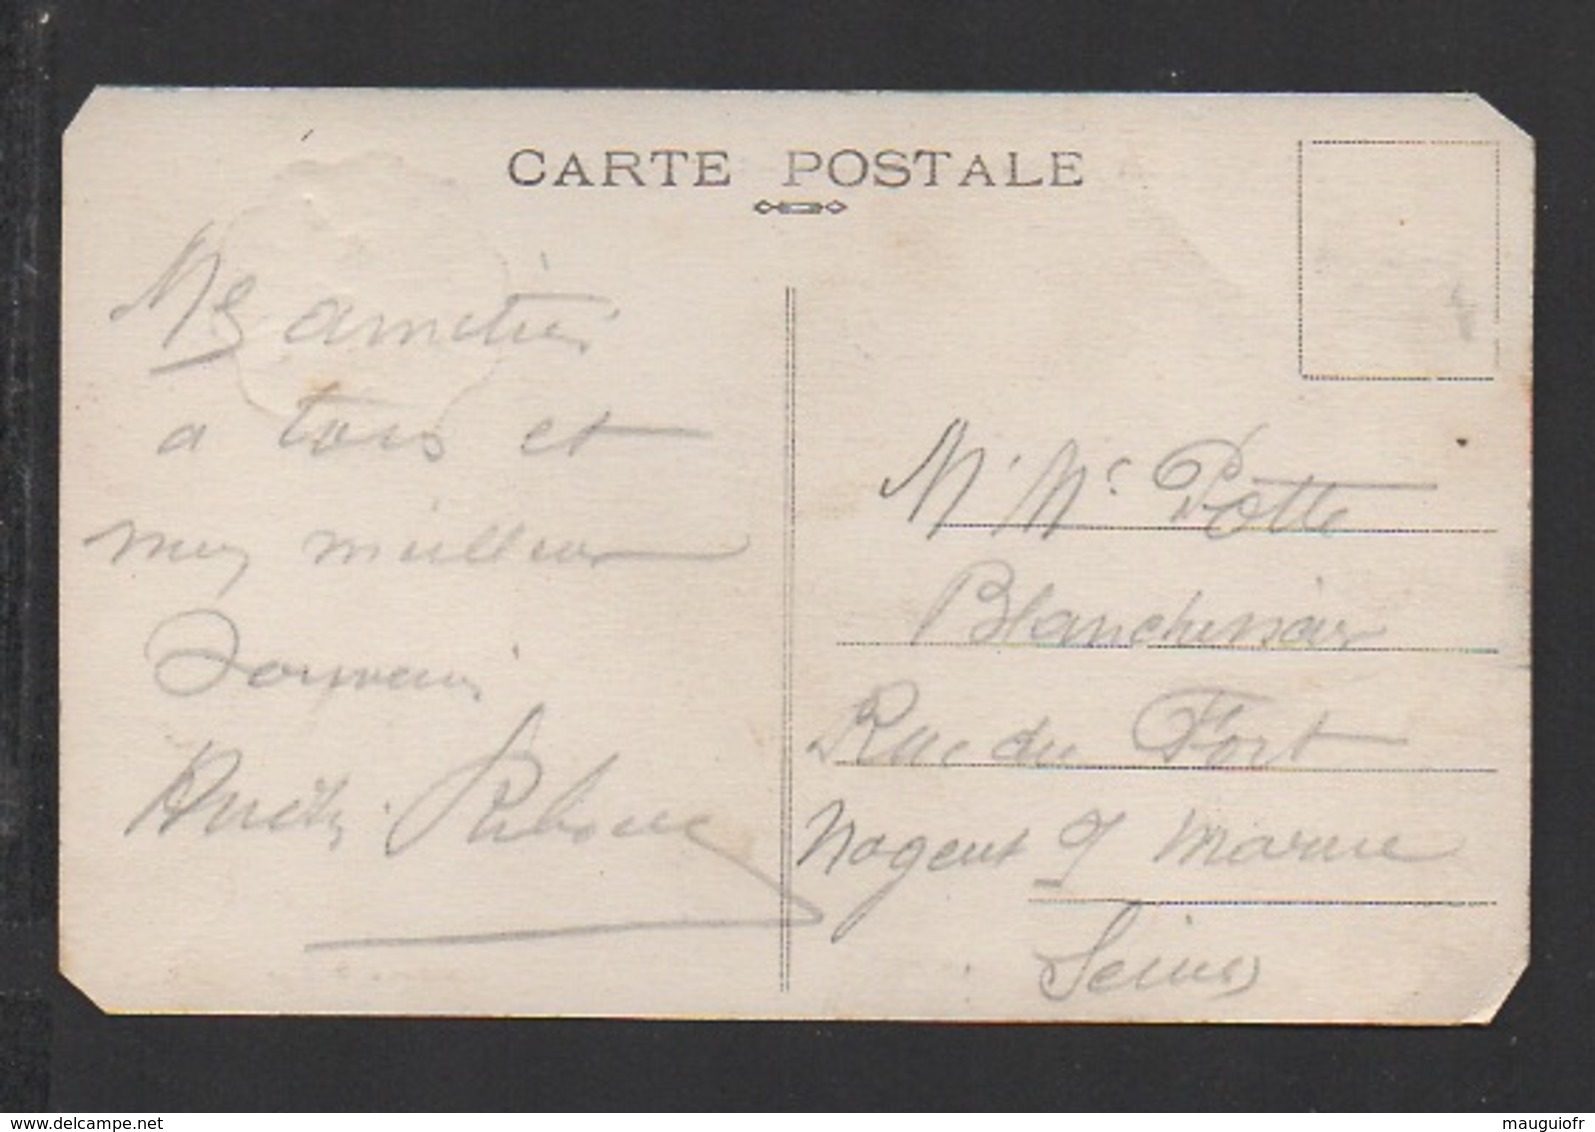 CARTE POSTALE
Mes amitiés
a tous et
mes meilleurs
Souvenirs
M. Me Potte
Blanchisseur
Rue du Fort
Nogent s/ Marne
Seine
www.delcampe.net
mauguiofr